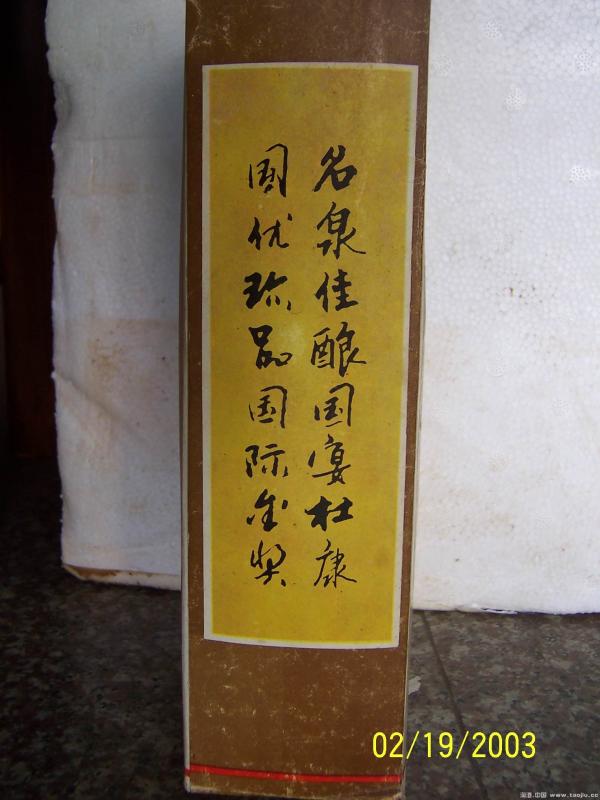 名泉佳酿国宴杜康
国优珍品国际金奖
02/19/2003
淘酒.中国 www.taojiu.cc